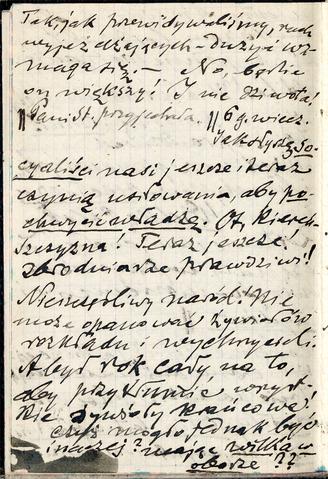 Tak, jak przewidywaliśmy, ruch
wyjeżdżających – duży i wz-
maga się. — No, będzie
on większy! I nie dziwota!
Pani St. przyjechała. 6 g. wiecz.
Jak słyszę, So-
cyaliści nasi jeszcze i teraz
czynią usiłowania, aby po-
chwycić władzę. Ot, kieren-
szczyzna! Teraz jeszcze!
zbrodniarze prawdziwi!
Nieszczęśliwy naród! Nie
może opanować żywiołów
rozkładu i wychrzcieli.
A był rok cały na to,
aby przytłumić wszyst-
kie żywioły krańcowe!
Czyż mogło jednak być
inaczej? mając wilka w
oborze??